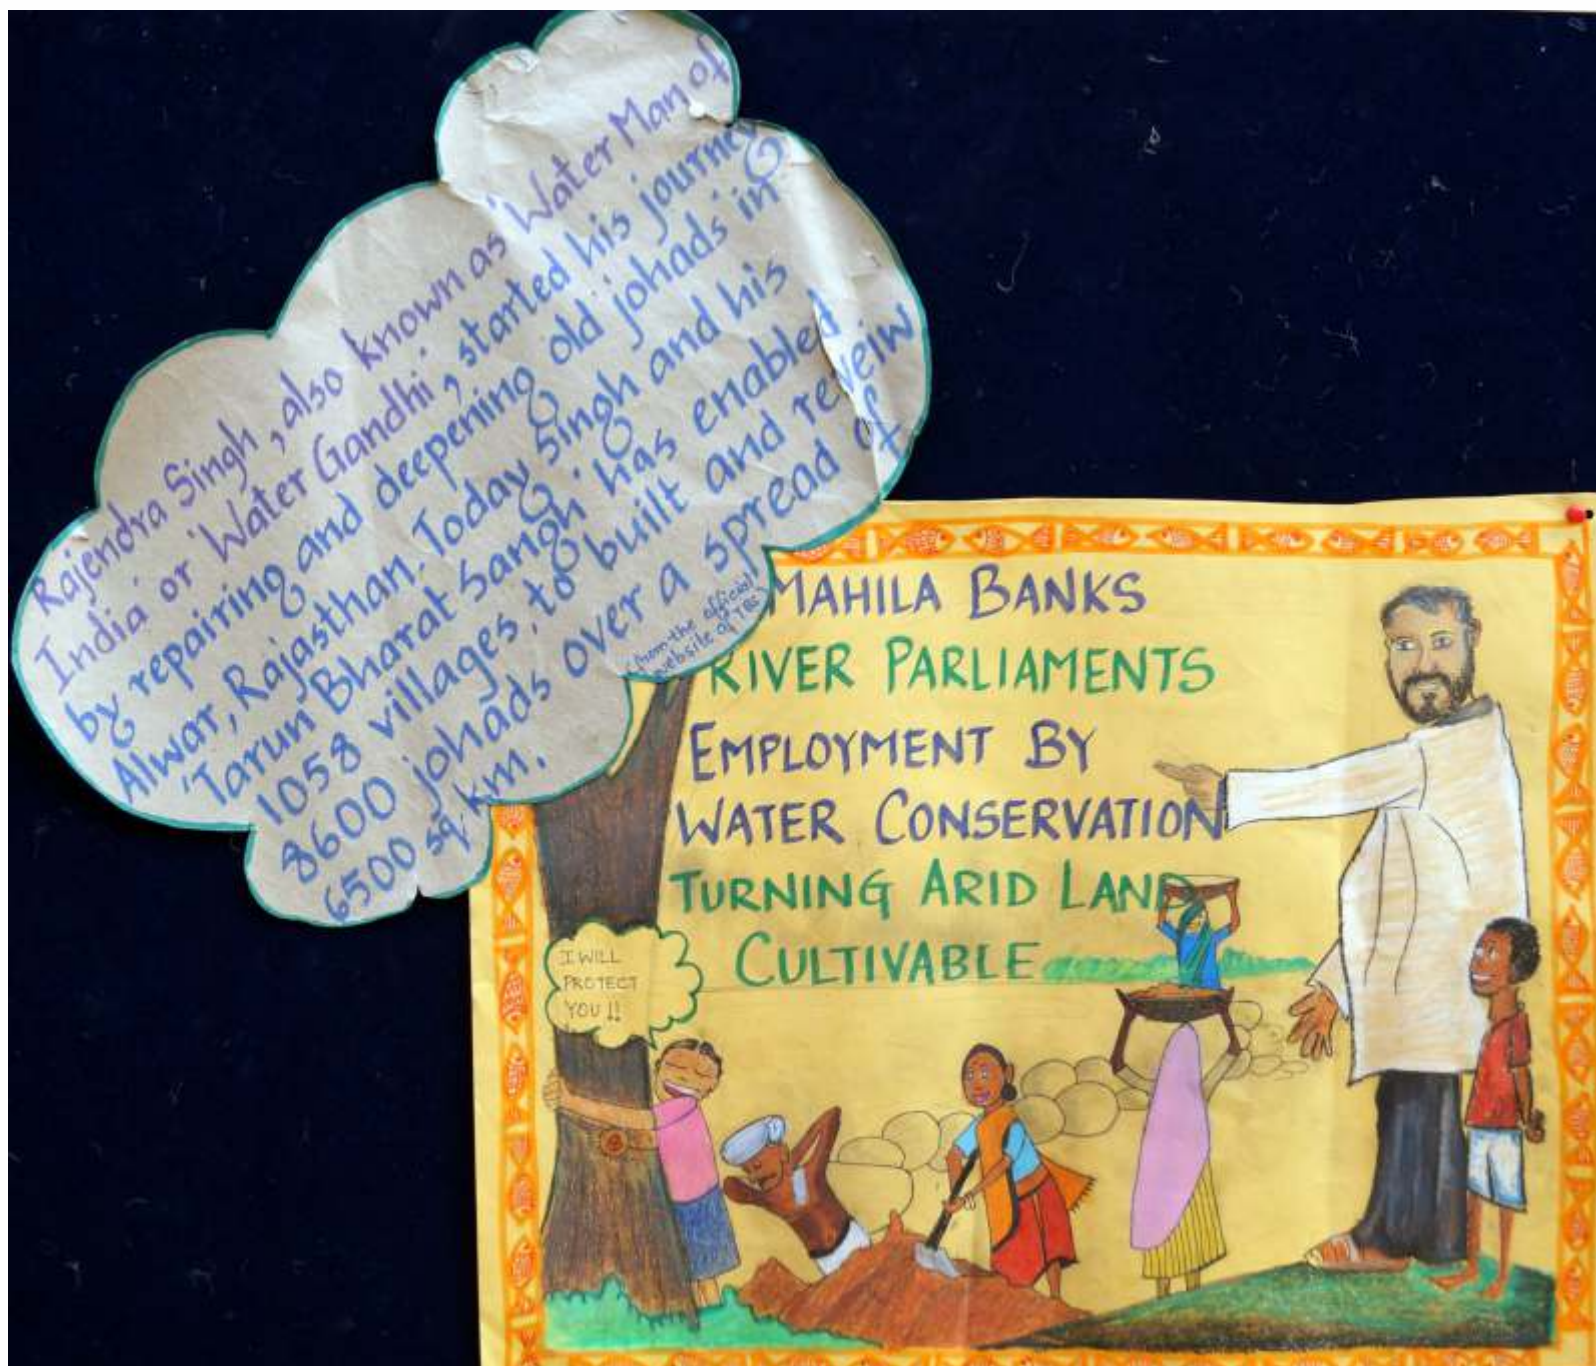 Rajendra Singh, also known as 'Water Man of
India' or 'Water Gandhi', started his journey
by repairing and deepening old johads in
Alwar, Rajasthan. Today Singh and his
'Tarun Bharat Sangh' has enabled
1058 villages, to built and reveiw
8600 johads over a spread of
6500 sq. km.
(from the official
website of TBS)
MAHILA BANKS
RIVER PARLIAMENTS
EMPLOYMENT BY
WATER CONSERVATION
TURNING ARID LAND
CULTIVABLE
I WILL
PROTECT
YOU !!